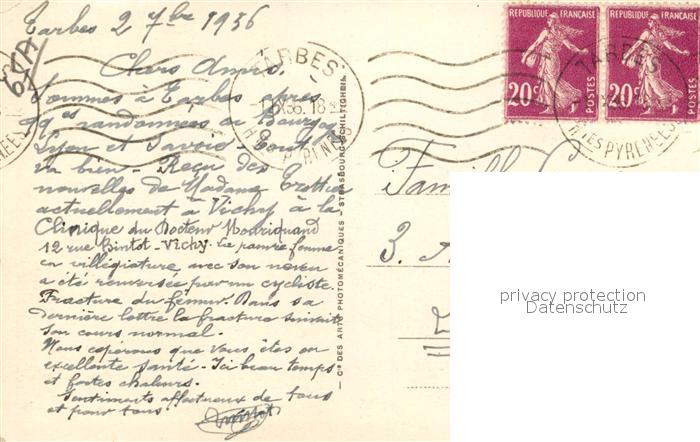 Tarbes 2 7bre 1936
Chers Amis,
Sommes à Tarbes après
qques randonnées en Bourgogne
Lyon et Savoie Tout
va bien - Reçu des
nouvelles de Madame
actuellement à Vichy à la
Clinique du Docteur
12 rue Bintot - Vichy. La pauvre femme
en villégiature, avec son neveu
a été renversée par un cycliste.
Fracture du fémur. Dans sa
dernière lettre la fracture suivait
son cours normal.
Nous espérons que vous êtes en
excellente santé - Ici beau temps
et fortes chaleurs.
Sentiments affectueux de tous
et pour tous.
TARBES
HTES PYRENEES
Cie DES ARTS PHOTOMÉCANIQUES - STRASBOURG-SCHILTIGHEIM
REPUBLIQUE FRANÇAISE
20c
POSTES
REPUBLIQUE FRANÇAISE
20c
POSTES
TARBES
HTES PYRENEES
Famille
3.
privacy protection
Datenschutz